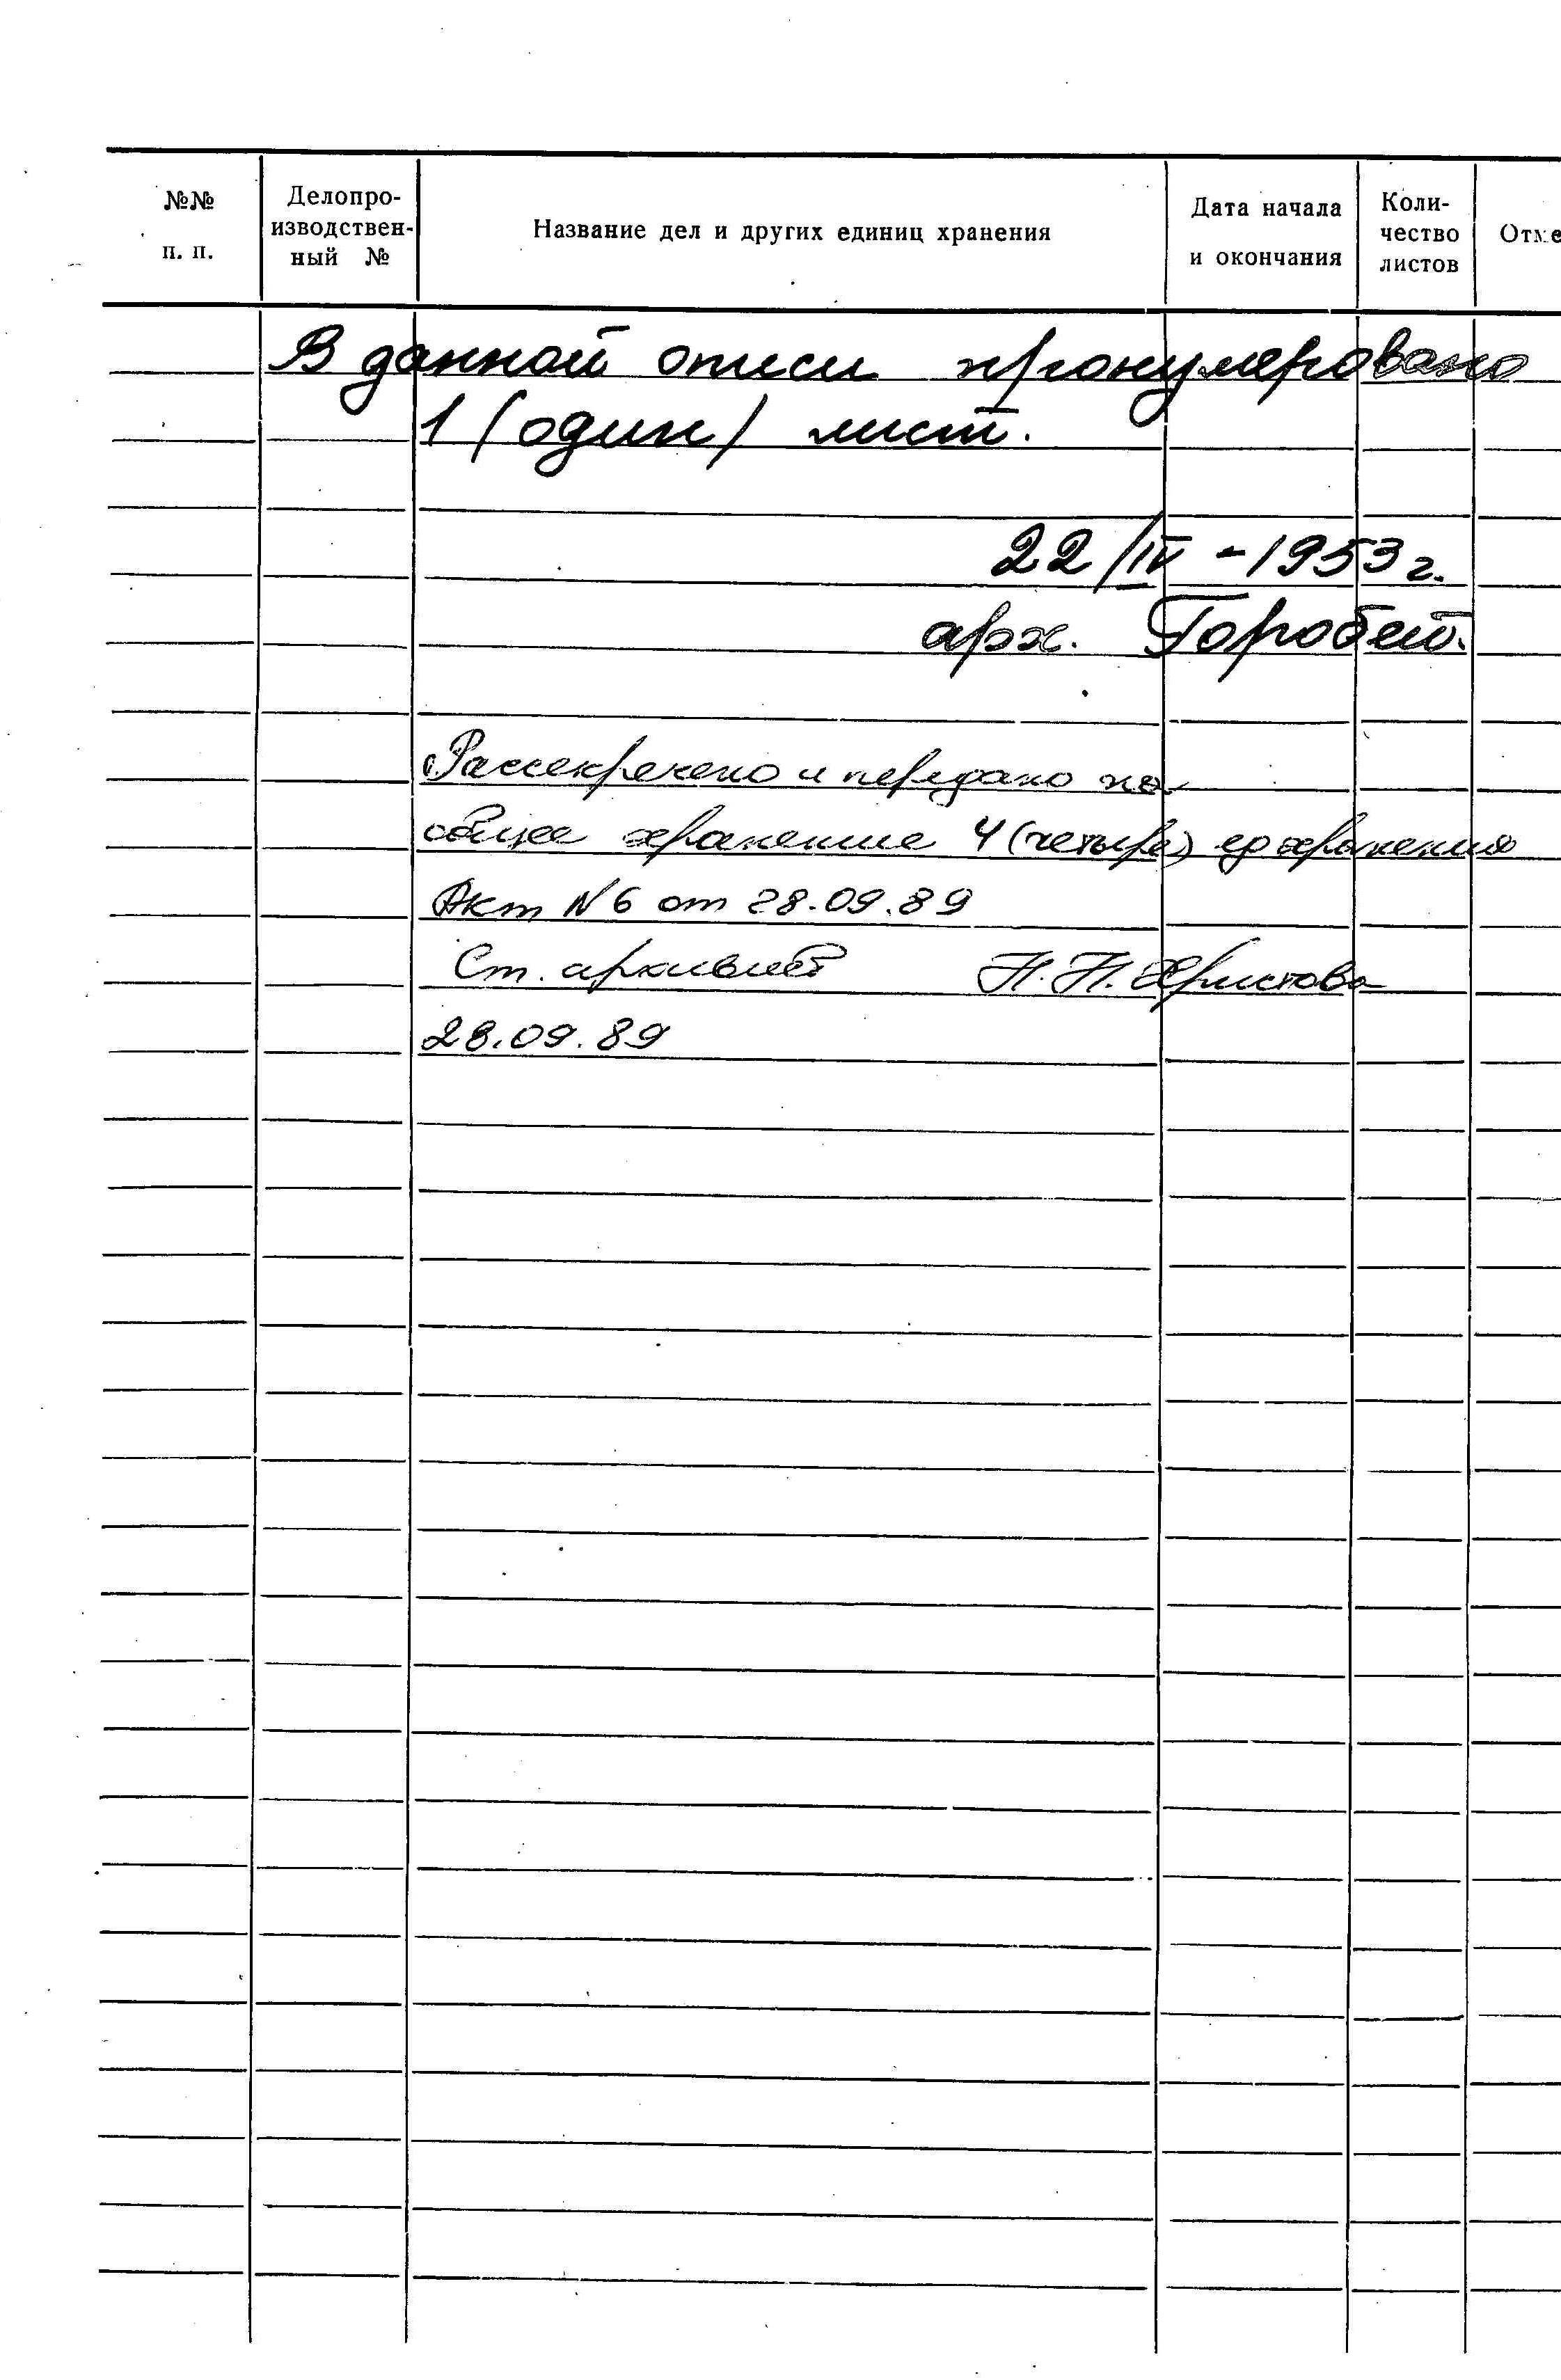 №№ п. п.
Делопро-
изводствен-
ный №
Название дел и других единиц хранения
Дата начала
и окончания
Коли-
чество
листов
Отме
В данной описи пронумеровано
1 (один) лист.
22/IV - 1953 г.
арх. Горобец.
Рассекречено и передано на
общее хранение 4 (четыре) ед хранения
Акт N 6 от 28.09.89
Ст. архивист Н. Н. Христова
28.09.89